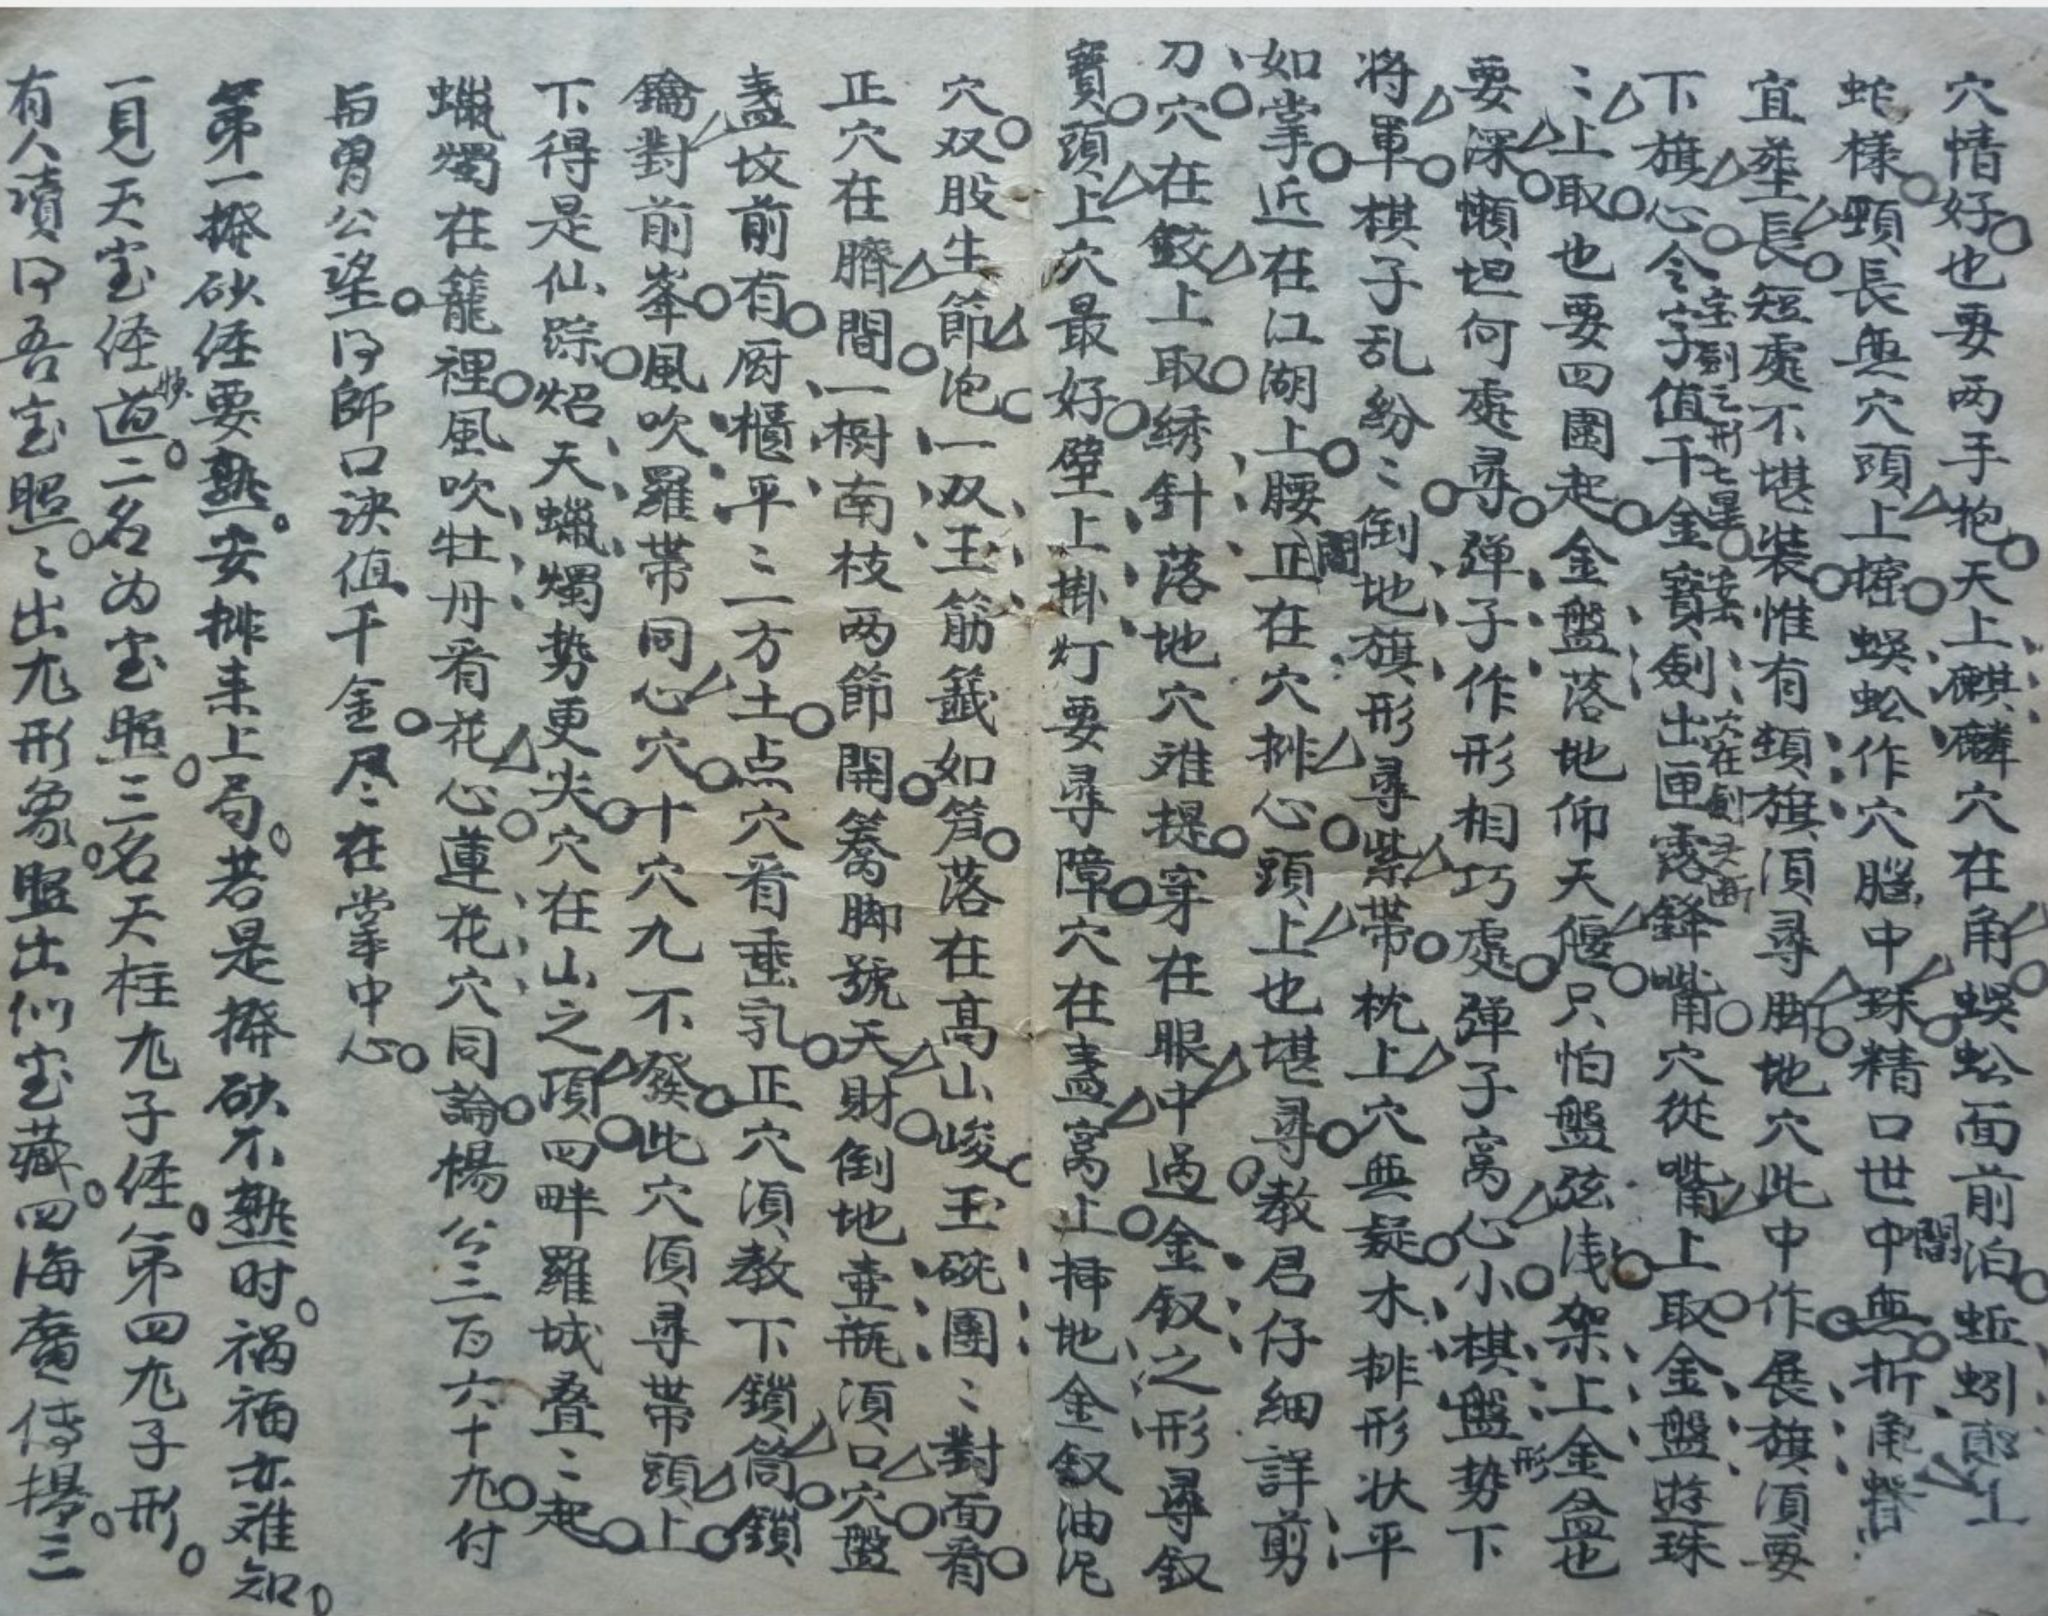 穴情好也要两手抱天上麒麟穴在角蜈蚣面前泊蚯蚓
蛇樣頸長無穴頭上擦蜈蚣作穴腦中珠精口世中無折角
間
宜葬長短處不堪裝惟有類旗須尋脚地穴此中作展旗須要
宝剑之形七星
穴在劍
下旗心令字值千金寶劍出匣露鋒嘴穴從嘴上取金盤遊珠
〻上取也要四圍起金盤落地仰天偃只怕盤弦浅架上金盆也
要深懶坦何處尋弹子作形相巧處弹子窩心小棋盤势下
形
将軍棋子乱紛〻倒地旗形尋紫带枕上穴無疑木排形状平
如掌近在江湖上腰正在穴排心頭上也堪尋教君仔細詳剪
間
刀穴在鉸上取綉針落地穴难提穿在眼中過金釵之形尋釵
寶頭上穴最好壁上掛灯要尋障穴在盞窩上插地金釵油泥
穴双股生節泡一双玉筋籤如笋落在高山峻玉碗團〻對面看
正穴在臍間一樹南枝两節開蓦脚號天財倒地壶瓶須口穴盤
盞坟前有厨櫃平〻一方土点穴看垂乳正穴須教下鎖筒鎖
鑰對前峯風吹羅带同心穴十穴九不發此穴須尋带頭上
下得是仙踪焰天蠟燭势更尖穴在山之頂四畔羅城叠〻起
蠟燭在籠裡風吹牡丹看花心蓮花穴同論楊公三百六十九付
与曾公望得師口诀值千金尽〻在掌中心
第一撥砂经要熟安排来上局若是撥砂不熟时祸福亦难知
一見天宝经道二名为宝照三名天柱九子经第四九子形
有人讀得吾宝照〻出九形象照出似宝藏四海廣传揚三